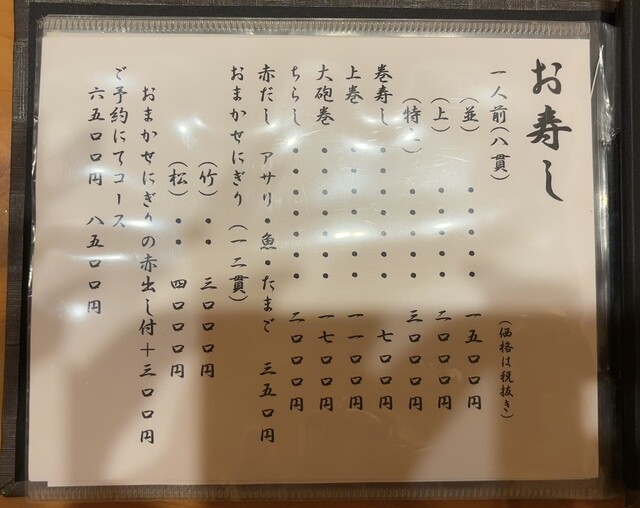 お寿し
（価格は税抜き）
一人前（八貫）
（並）・・・・・一五〇〇円
（上）・・・・・二〇〇〇円
（特上）・・・・三〇〇〇円
巻寿し・・・・・七〇〇円
上巻・・・・・一一〇〇円
大砲巻・・・・・一七〇〇円
ちらし・・・・・二〇〇〇円
赤だし アサリ・魚・たまご 三五〇円
おまかせにぎり（一二貫）
（竹）・・三〇〇〇円
（松）・・四〇〇〇円
おまかせにぎりの赤出し付＋三〇〇円
ご予約にてコース
六五〇〇円 八五〇〇円